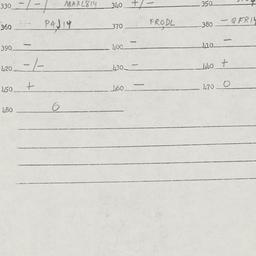 330 -/-/ MARL814 340 +/- 350
360 PAJ14 370 FRODL 380 - QFR14
390 - 400 - 410 -
420 -/- 430 - 440 +
450 + 460 - 470 0
480 0